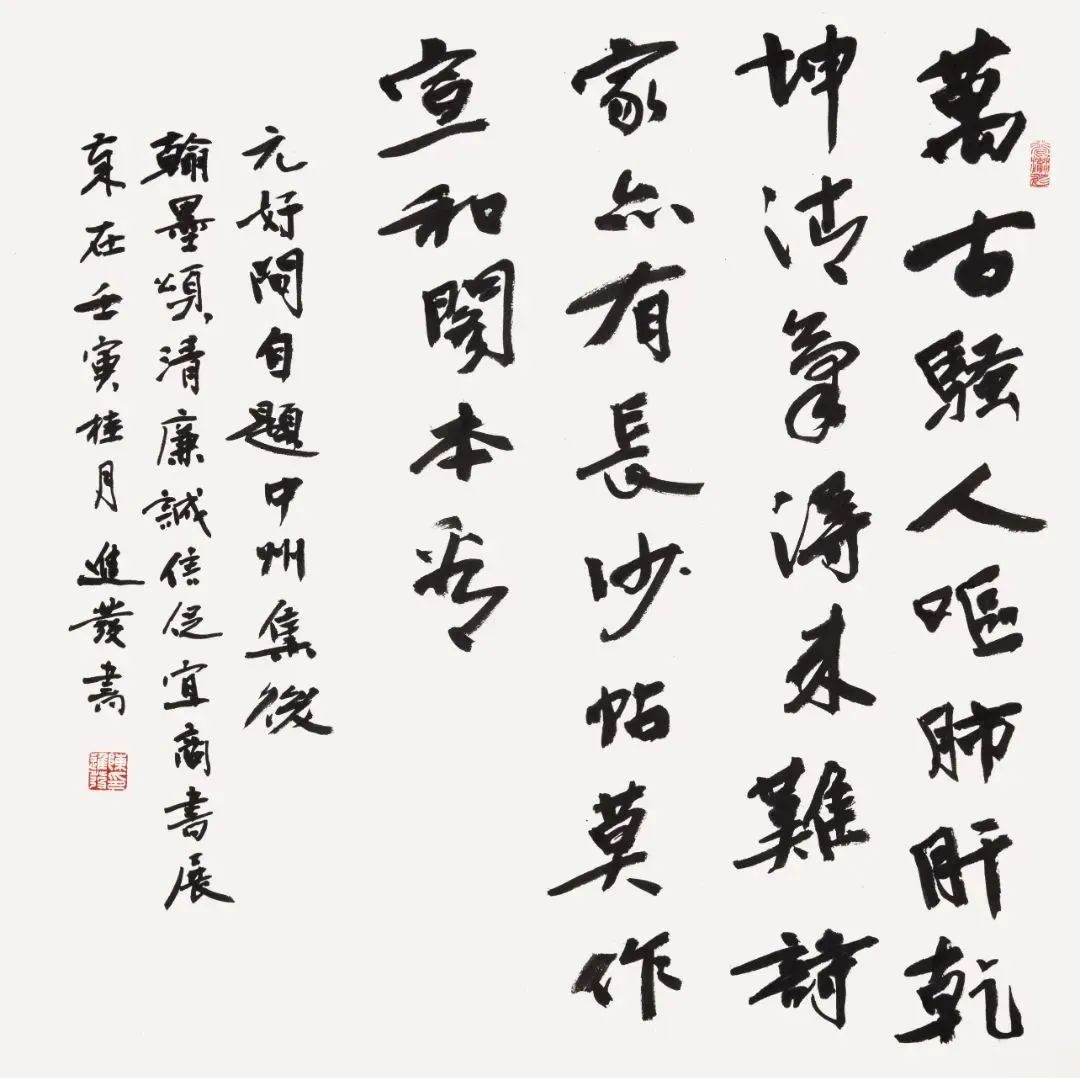 萬古騷人嘔肺肝乾
坤清氣得來難詩
家亦有長沙帖莫作
宣和閣本看
元好問自題中州集後
翰墨頌清廉誠信促宜商書展
歲在壬寅桂月進發書
陳印進發